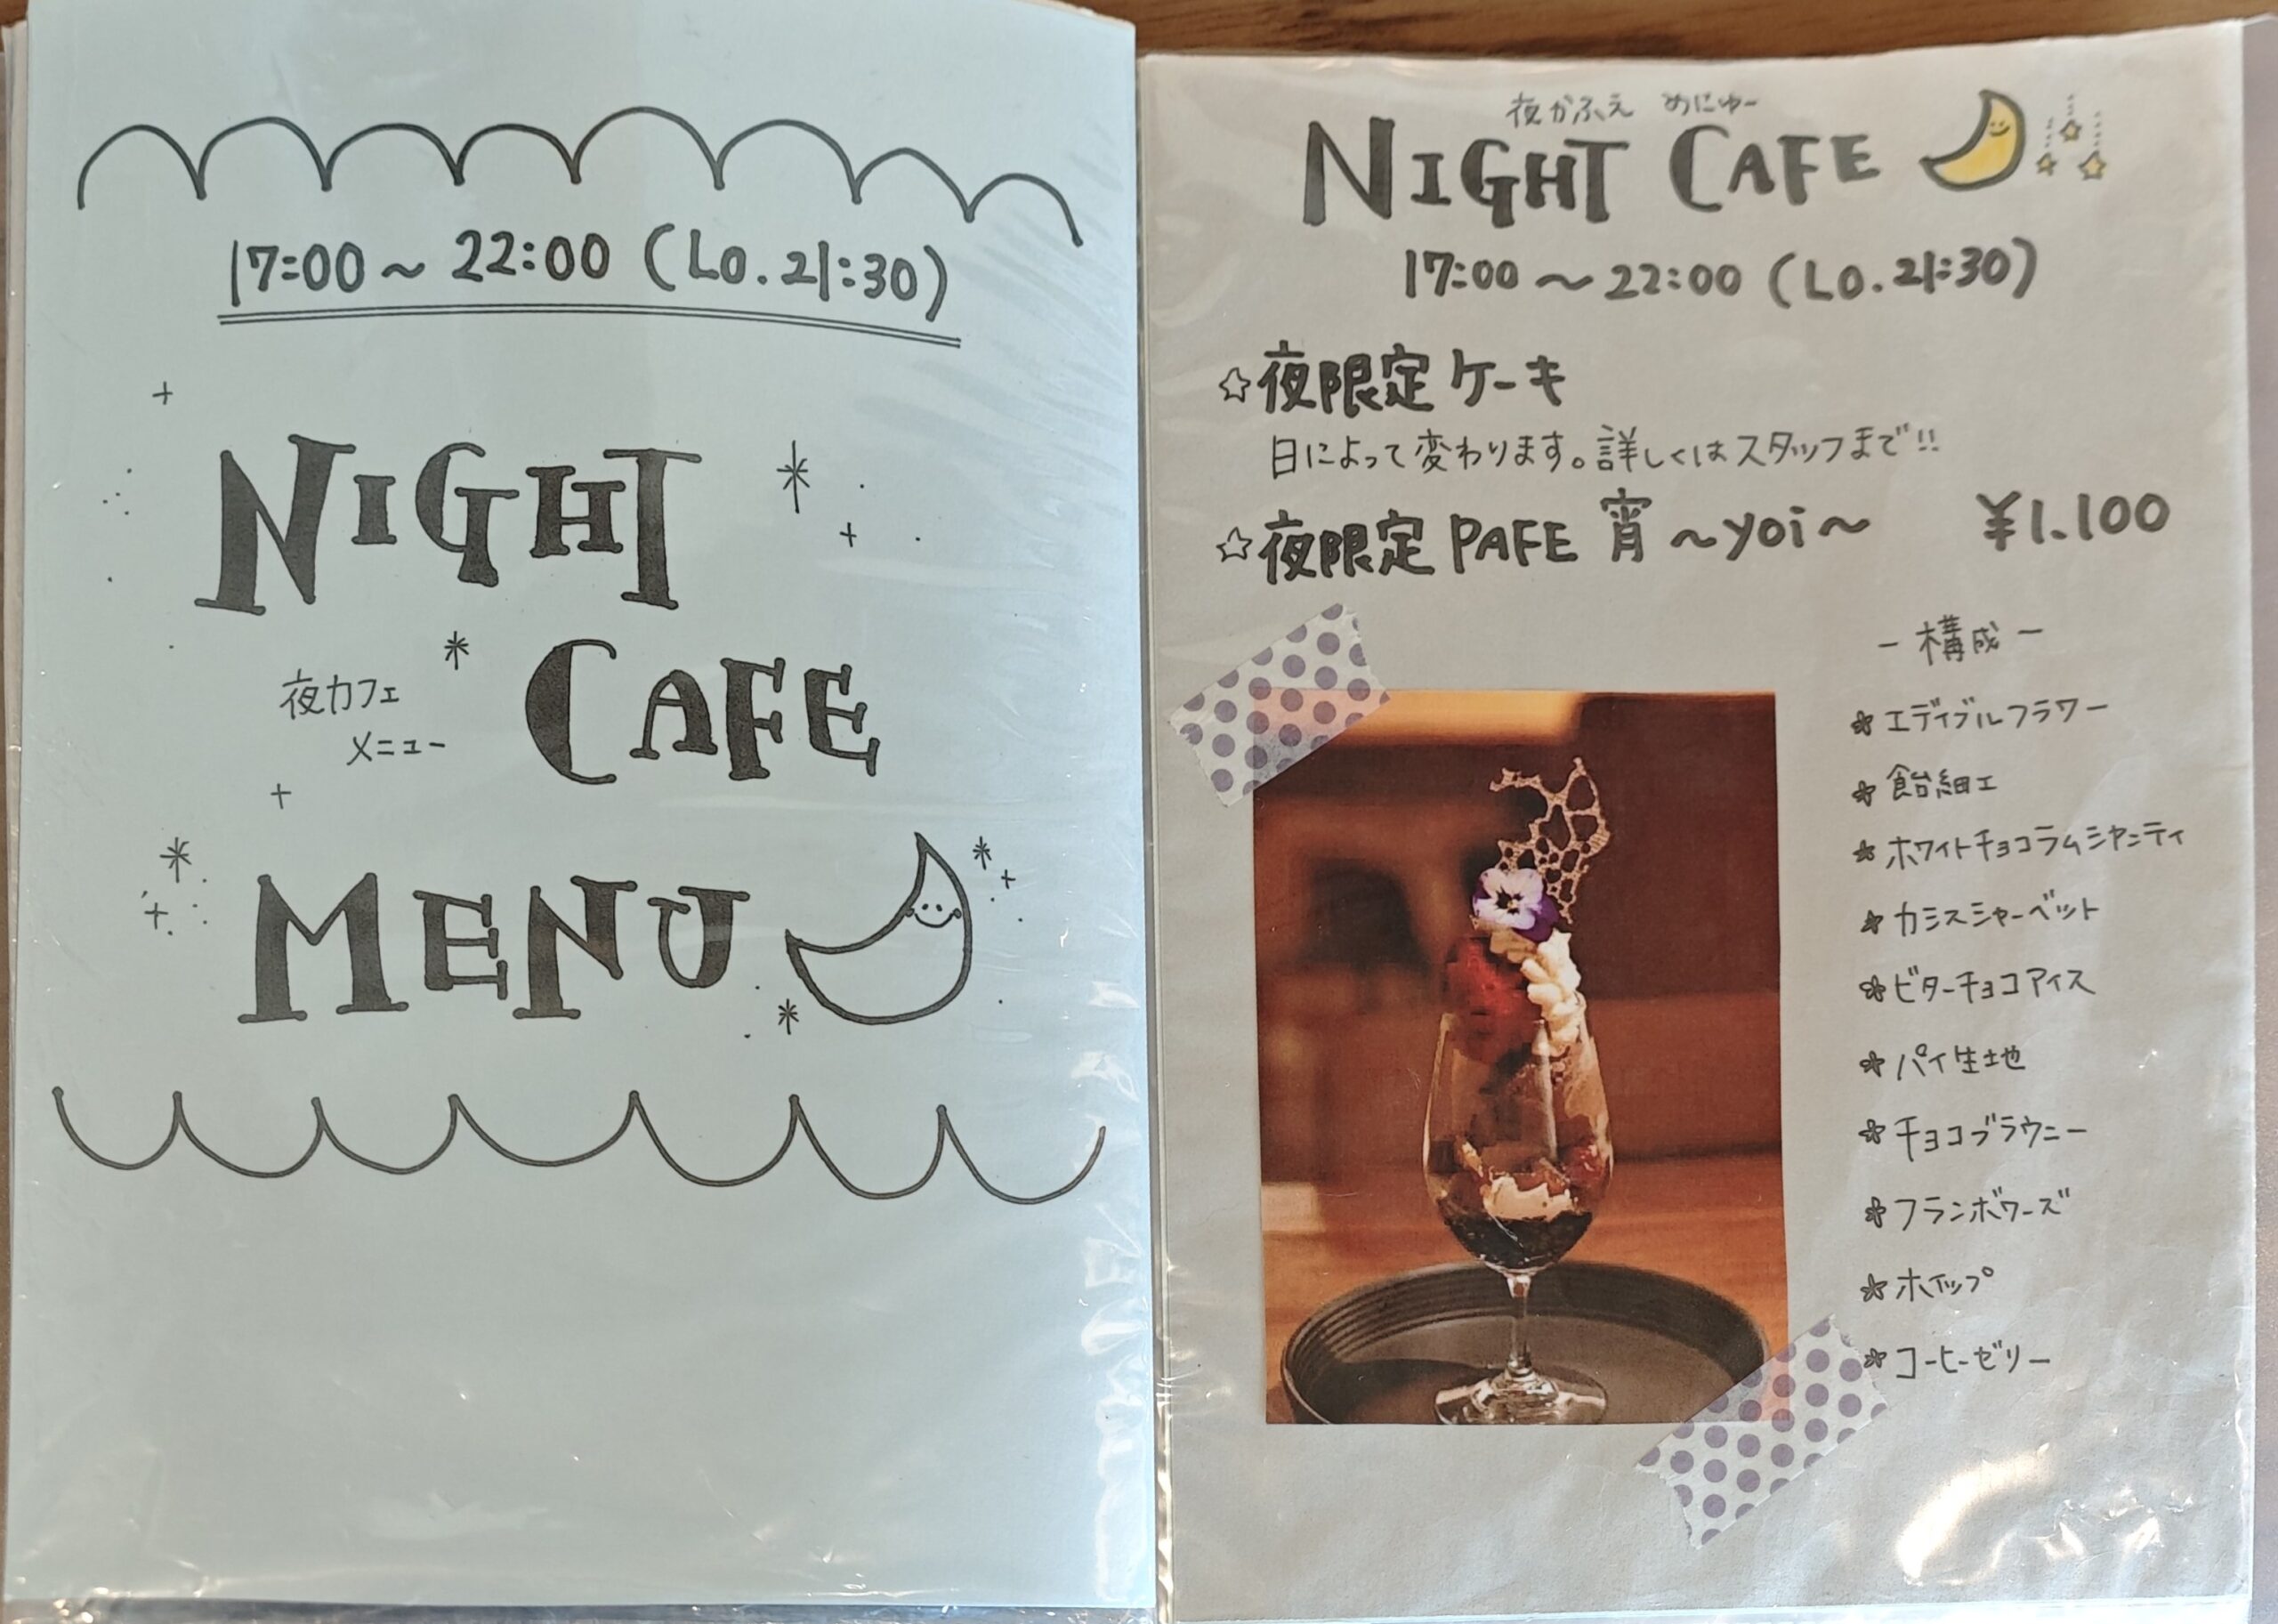 17:00～22:00 (Lo.21:30)
NIGHT
夜カフェ
メニュー
CAFE
MENU
夜かふえ めにゅー
NIGHT CAFE
17:00～22:00 (Lo.21:30)
☆夜限定ケーキ
日によって変わります。詳しくはスタッフまで!!
☆夜限定PAFE 宵～yoi～ ¥1.100
-構成-
エディブルフラワー
飴細工
ホワイトチョコラムシャンティ
カシスシャーベット
ビターチョコアイス
パイ生地
チョコブラウニー
フランボワーズ
ホイップ
コーヒーゼリー